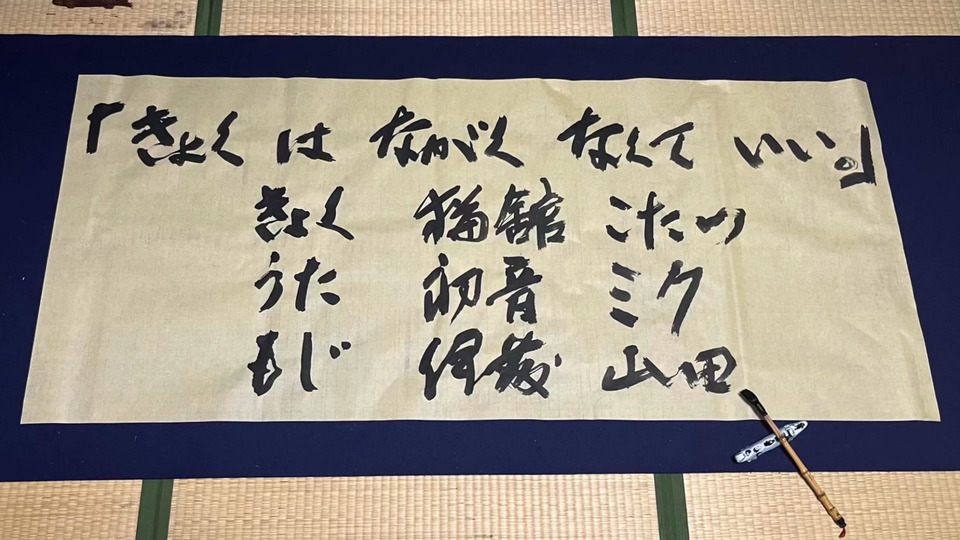 「きょく は ながく なくて いい。」
きょく 猫舘 こたつ
うた 初音 ミク
もじ 山田